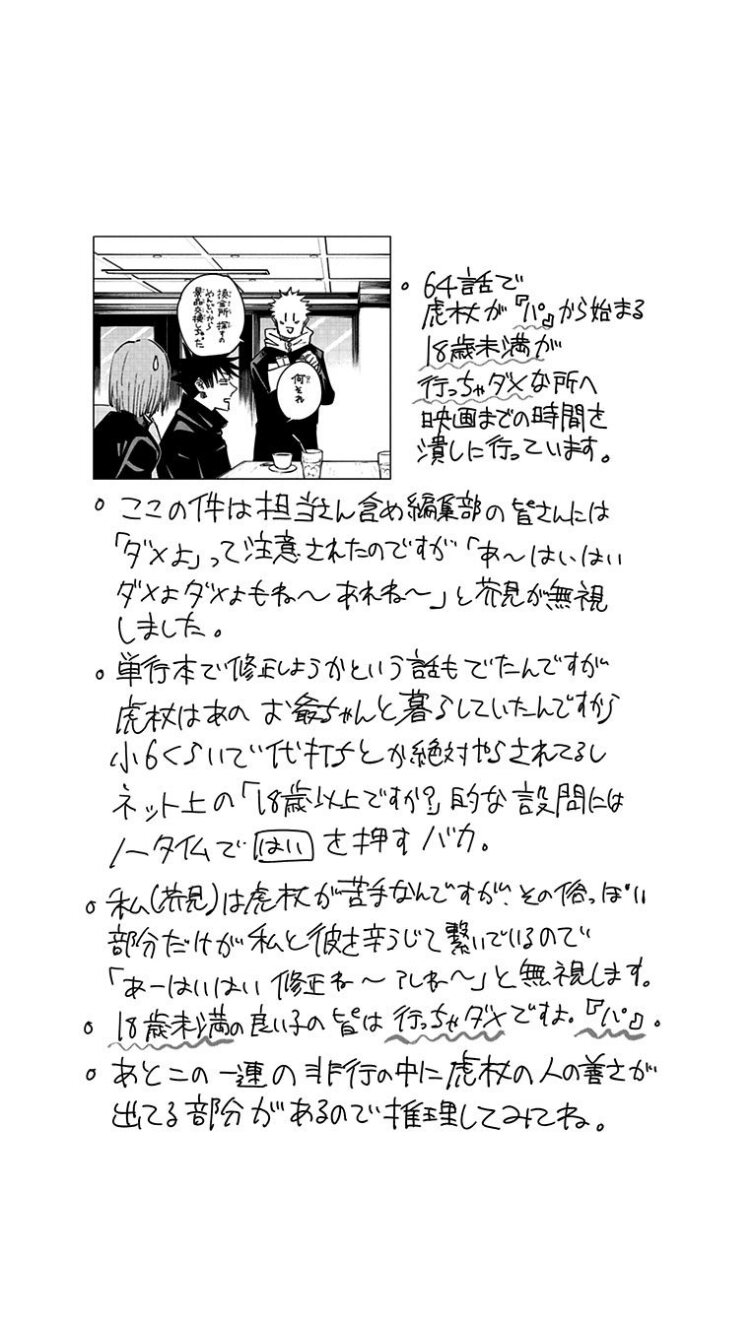 換金所探すの
やんどいから
景品交換しちゃった
何それ
。64話で
虎杖が『パ』から始まる
18歳未満が
行っちゃダメな所へ
映画までの時間を
潰しに行っています。
。ここの件は担当さん含め編集部の皆さんには
「ダメよ」って注意されたのですが「あ〜はいはい
ダメよダメよもね〜あれね〜」と芥見が無視
しました。
。単行本で修正しようかという話もでたんですが
虎杖はあのお爺ちゃんと暮らしていたんですから
小6くらいで代打ちとか絶対やらされてるし
ネット上の「18歳以上ですか?」的な設問には
ノータイムではいを押すバカ。
。私(芥見)は虎杖が苦手なんですが、その俗っぽい
部分だけが私と彼を辛うじて繋いでいるので
「あーはいはい修正ね〜アレね〜」と無視します。
。18歳未満の良い子の皆は行っちゃダメですよ。『パ』。
。あとこの一連の非行の中に虎杖の人の善さが
出てる部分があるので推理してみてね。